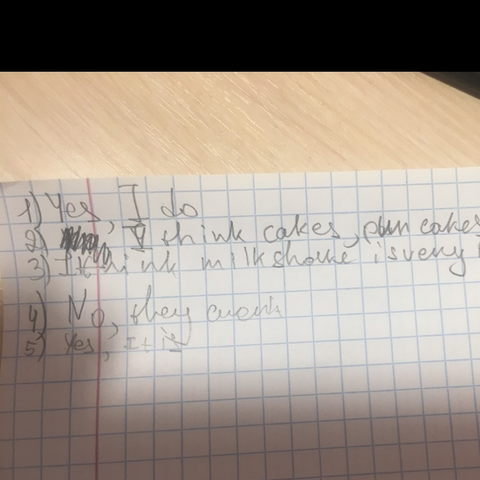 1) Yes, I do
2) I think cakes, pancakes
3) I think milkshake is very
4) No, they aren't
5) Yes, It is